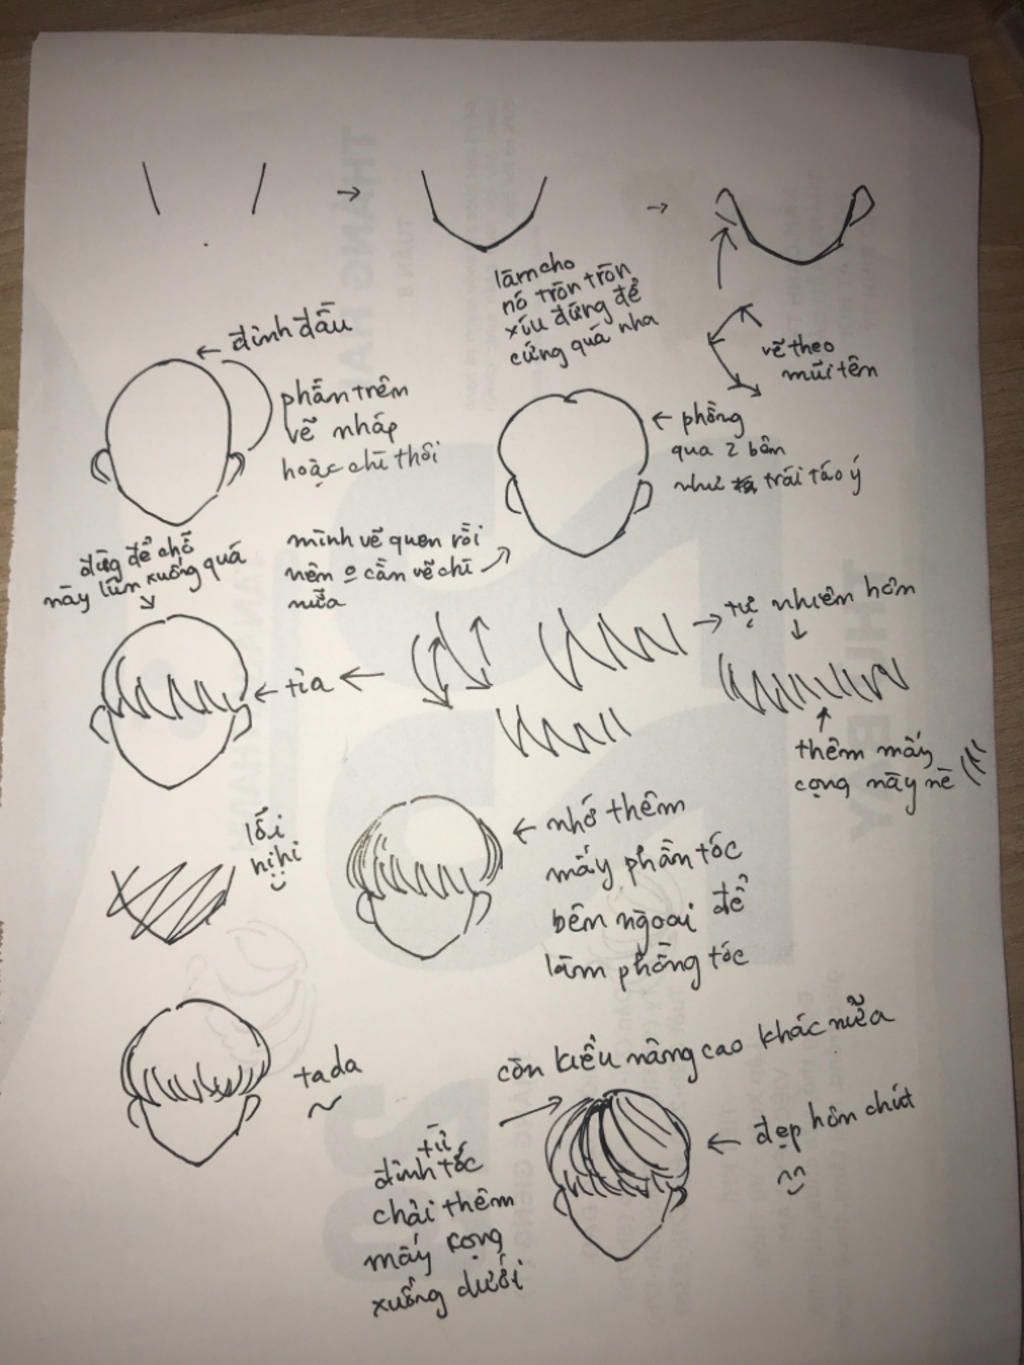 làm cho
nó tròn tròn
xíu đừng để
cứng quá nha
vẽ theo
mũi tên
đỉnh đầu
phần trên
vẽ nháp
hoặc chì thôi
phồng
qua 2 bên
như trái táo ý
mình vẽ quen rồi
nên o cần vẽ chì
nữa
đừng để chỗ
này lún xuống quá
tỉa
tự nhiên hơn
thêm mấy
cọng này nè
lỗi
hihi
nhớ thêm
mấy phần tóc
bên ngoài để
làm phồng tóc
tada
còn kiểu nâng cao khác nữa
từ
đỉnh tóc
chải thêm
mấy cọng
xuống dưới
đẹp hơn chút